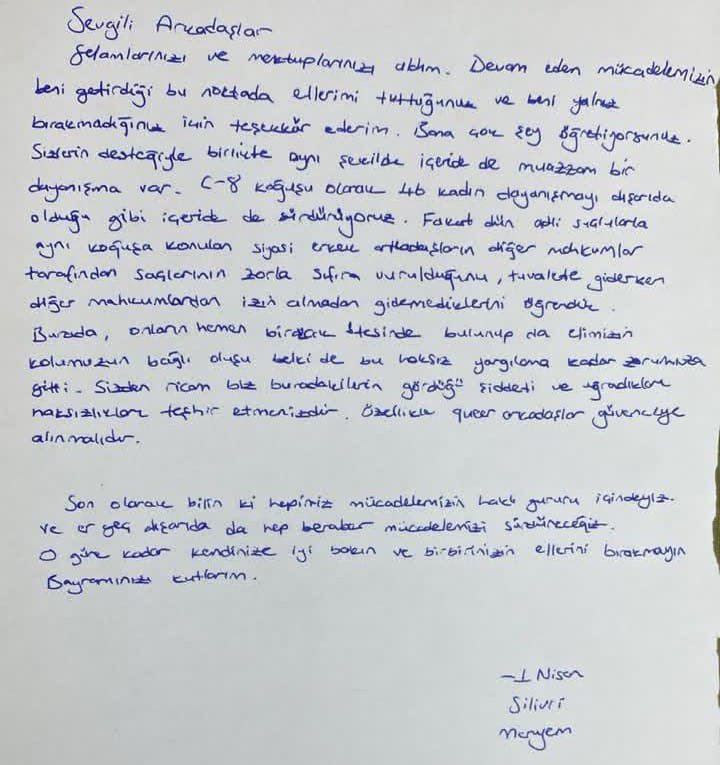 Sevgili Arkadaşlar
Selamlarınızı ve mektuplarınızı aldım. Devam eden mücadelemizin
beni getirdiği bu noktada ellerimi tuttuğunuz ve beni yalnız
bırakmadığınız için teşekkür ederim. Bana çok şey öğretiyorsunuz.
Sizlerin desteğiyle birlikte aynı şekilde içeride de muazzam bir
dayanışma var. C-8 koğuşu olarak 46 kadın dayanışmayı dışarıda
olduğu gibi içeride de sürdürüyoruz. Fakat dün adli suçlularla
aynı koğuşa konulan siyasi erkek arkadaşların diğer mahkumlar
tarafından saçlarının zorla sıfıra vurulduğunu, tuvalete giderken
diğer mahkumlardan izin almadan gidemediklerini öğrendik.
Burada, onların hemen birazcık ötesinde bulunup da elimizin
kolumuzun bağlı oluşu belki de bu haksız yargılama kadar zorumuza
gitti. Sizden ricam biz buradakilerin gördüğü şiddeti ve uğradıkları
haksızlıkları teşhir etmenizdir. Özellikle queer arkadaşlar güvenceye
alınmalıdır.
Son olarak bilin ki hepimiz mücadelemizin haklı gururu içindeyiz.
ve er geç dışarıda da hep beraber mücadelemizi sürdüreceğiz.
O güne kadar kendinize iyi bakın ve birbirinizin ellerini bırakmayın
Bayramınızı kutlarım.
-1 Nisan
Silivri
Meryem